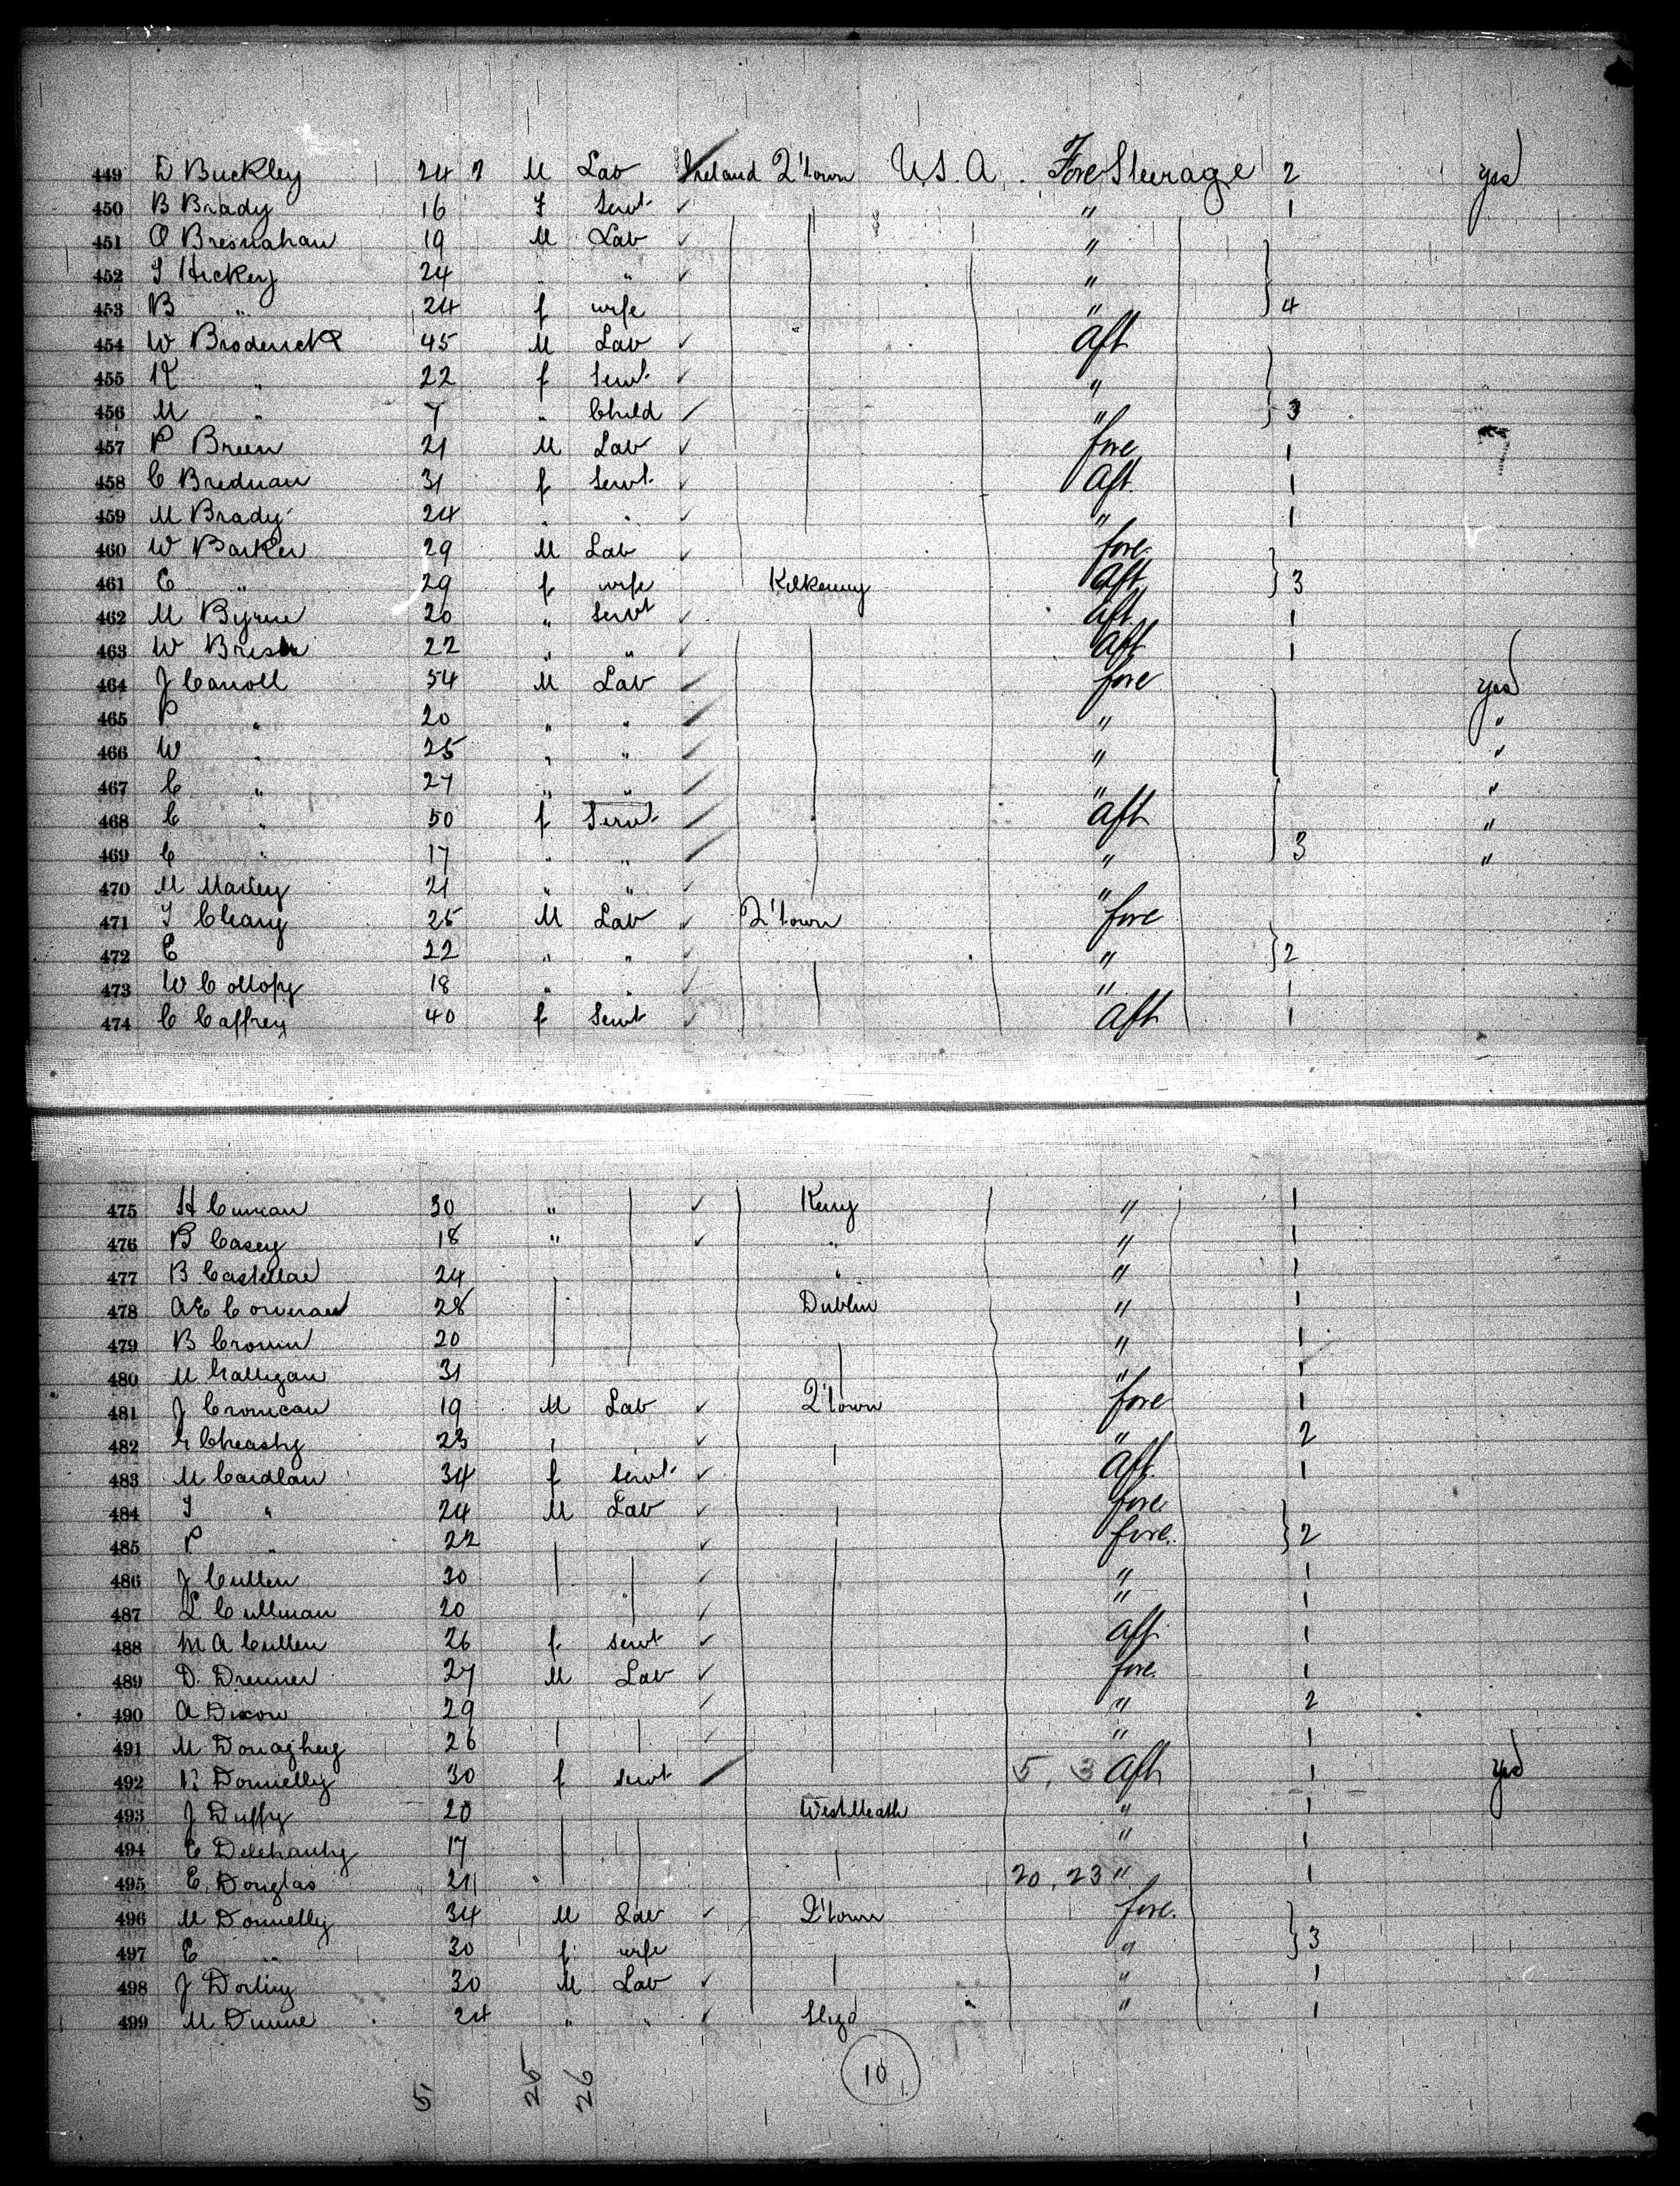 449 D Buckley 24 M Lab Ireland Q'town U.S.A. Fore Steerage 2 yes
450 B Brady 16 F Servt ✓ " 1
451 Bresnahan 19 M Lab ✓ "
452 Hickey 24 " " ✓ "
453 B " 24 f wife " } 4
454 W Broderick 45 M Lab ✓ Aft
455 K " 22 f Servt ✓ "
456 M " 7 " Child ✓ " } 3
457 P Breen 21 M Lab ✓ fore 1
458 C Brednan 31 f Servt ✓ Aft 1
459 M Brady 24 " " ✓ " 1
460 W Barker 29 M Lab ✓ fore
461 C " 29 f wife Kilkenny Aft } 3
462 M Byrne 20 " Servt ✓ Aft 1
463 W 22 " " ✓ Aft 1
464 J Carroll 54 M Lab ✓ fore yes
465 P " 20 " " ✓ " "
466 W " 25 " " ✓ " "
467 C " 27 " " ✓ " "
468 C " 50 f Servt ✓ aft "
469 C " 17 " " ✓ " 3 "
470 M 21 " " ✓ "
471 Cleary 25 M Lab ✓ Q'town fore
472 22 " " ✓ " } 2
473 W Collopy 18 " " ✓ " 1
474 C Caffrey 40 f Servt ✓ Aft 1
475 H 30 " ✓ Kerry " 1
476 B Casey 18 " ✓ " " 1
477 B 24 " " 1
478 AE 28 Dublin " 1
479 B Cronin 20 " 1
480 M 31 " 1
481 J 19 M Lab ✓ Q'town fore 1
482 23 " " ✓ " " 2
483 M 34 f Servt ✓ Aft 1
484 " 24 M Lab ✓ fore
485 P " 22 ✓ fore. } 2
486 J Cullen 30 ✓ " 1
487 L Cullinan 20 ✓ " 1
488 M A Cullen 26 f servt ✓ aft 1
489 D. 27 M Lab ✓ fore. 1
490 A Dixon 29 ✓ " 2
491 M Donaghey 26 ✓ " 1
492 Donnelly 30 f servt ✓ 5, 3 Aft 1 yes
493 J Duffy 20 WestMeath " 1
494 E Delehanty 17 " 1
495 E. Douglas 21 20, 23 " 1
496 M Donnelly 34 M Lab ✓ Q'town fore.
497 E " 30 f wife " } 3
498 J 30 M Lab ✓ " 1
499 M Dunne 24 " " ✓ Sligo " 1
5 25 26 10